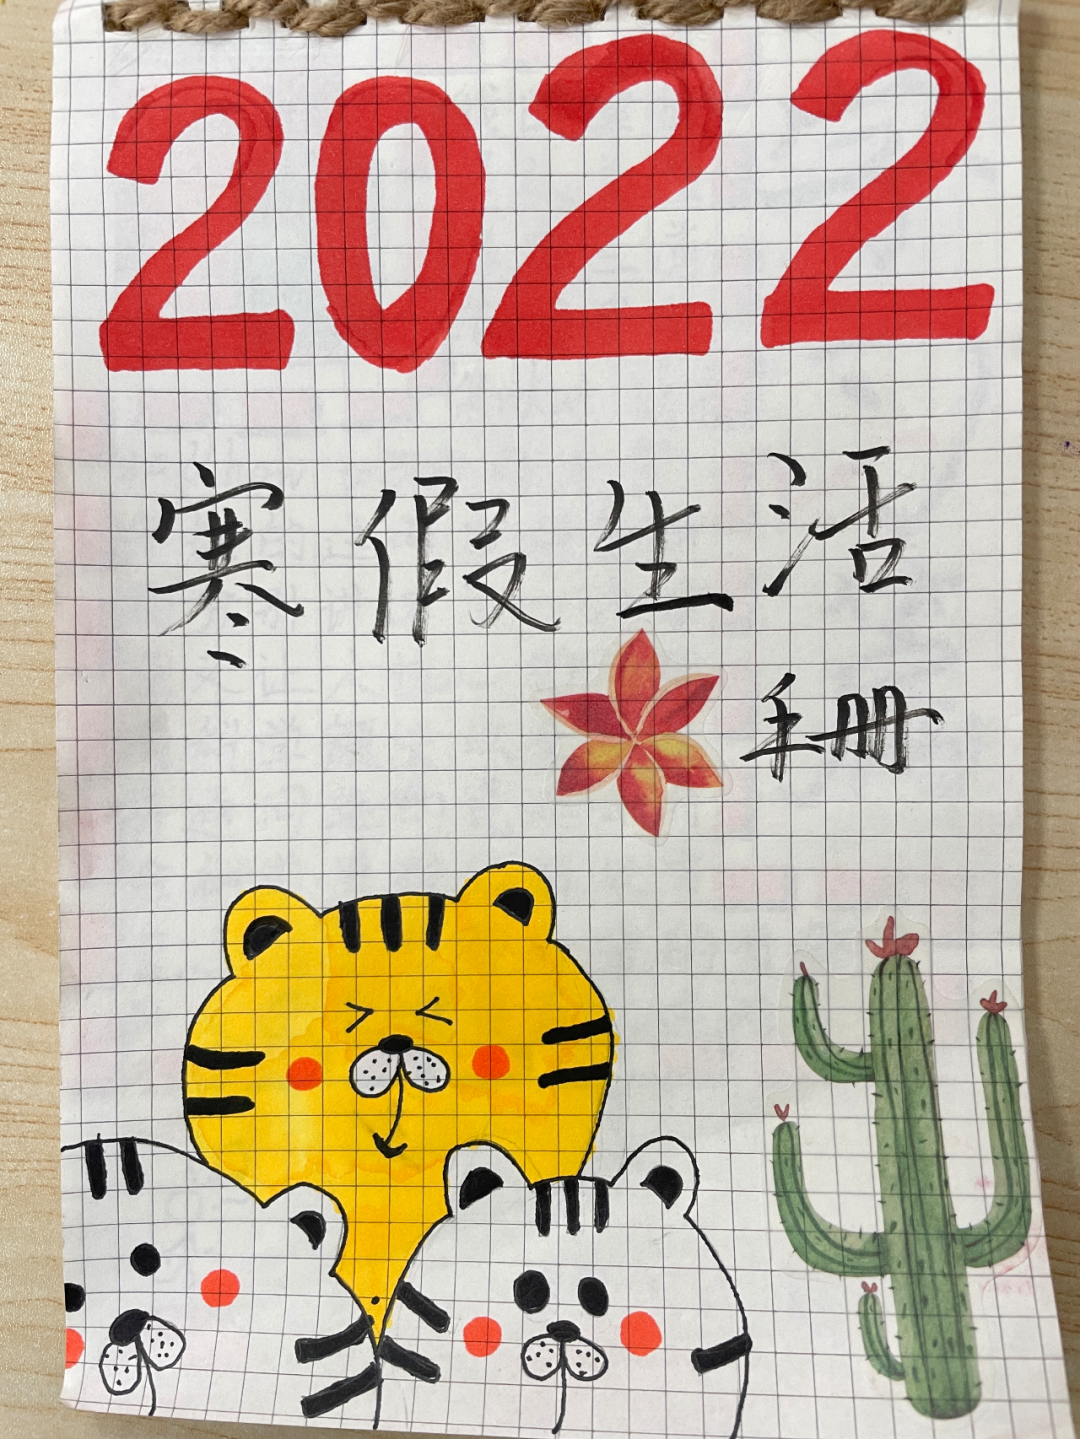 2022
寒假生活
手册